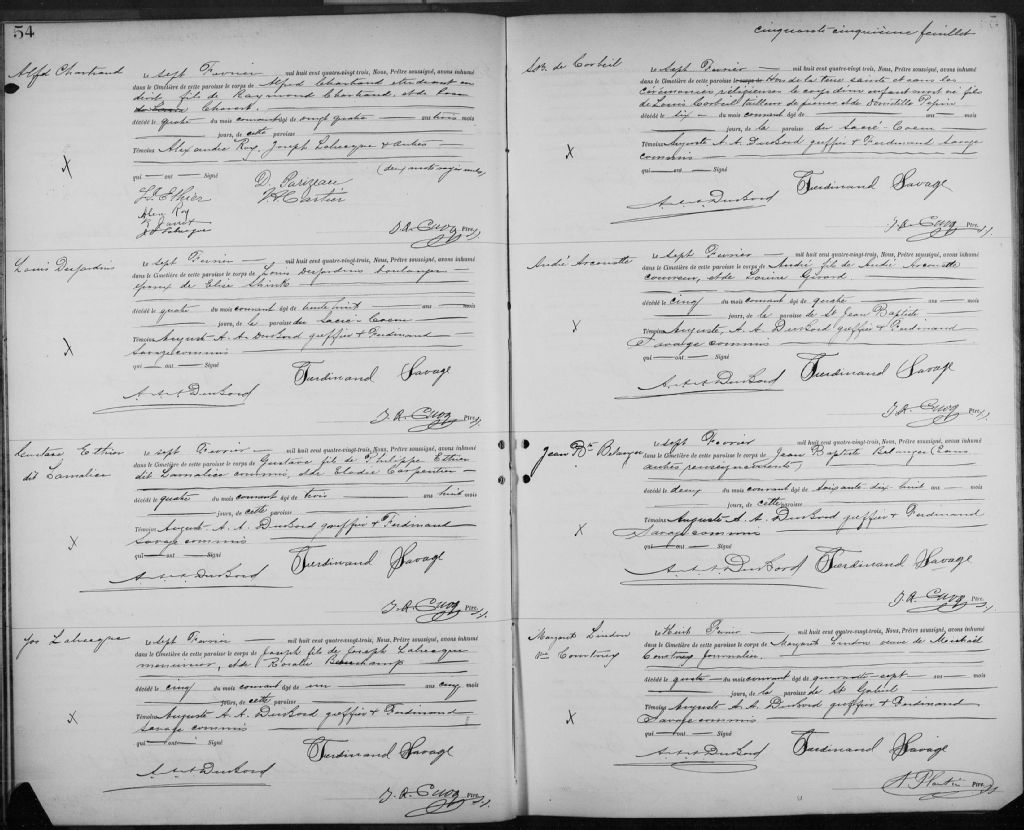 54
Alfd Chartrand
Le sept Fevrier mil huit cent quatre-vingt-trois, Nous, Prêtre soussigné, avons inhumé
dans le Cimetière de cette paroisse le corps de Alfred Chartrand etudiant en
droit fils de Raymond Chartrand, et de
décédé le quatre du mois courant âgé de vingt quatre ans trois mois
jours, de cette paroisse
Témoins Alexandre Roy, Joseph Labrecque & autres
qui ont Signé (deux mots rayés nuls)
Ls. Ethier D. Parizeau
Alex Roy
J. R. Cuoq Ptre.
Louis Desjardins
Le sept Fevrier mil huit cent quatre-vingt-trois, Nous, Prêtre soussigné, avons inhumé
dans le Cimetière de cette paroisse le corps de Louis Desjardins boulanger
epoux de Elise
décédé le quatre du mois courant âgé de trente huit ans mois
jours, de la paroisse du Sacré-Coeur
Témoins Auguste A. A. DuBord greffier & Ferdinand
Savage commis
qui ont Signé
A. A. A. DuBord Ferdinand Savage
J. R. Cuoq Ptre.
Gustave Ethier
dit Lamalice
Le sept Fevrier mil huit cent quatre-vingt-trois, Nous, Prêtre soussigné, avons inhumé
dans le Cimetière de cette paroisse le corps de Gustave fils de Philippe Ethier
dit Lamalice commis, et de Elodie Carpentier
décédé le quatre du mois courant âgé de trois ans huit mois
jours, de cette paroisse
Témoins Auguste A. A. DuBord greffier & Ferdinand
Savage commis
qui ont Signé
A. A. A. DuBord Ferdinand Savage
J. R. Cuoq Ptre.
Jos Labrecque
Le sept Fevrier mil huit cent quatre-vingt-trois, Nous, Prêtre soussigné, avons inhumé
dans le Cimetière de cette paroisse le corps de Joseph fils de Joseph Labrecque
menuisier, et de Rosalie Beauchamp
décédé le cinq du mois courant âgé de un ans cinq mois
jours, de cette paroisse
Témoins Auguste A. A. DuBord greffier & Ferdinand
Savage commis
qui ont Signé
A. A. A. DuBord Ferdinand Savage
J. R. Cuoq Ptre.
cinquante cinquième feuillet
de Corbeil
Le sept Fevrier mil huit cent quatre-vingt-trois, Nous, Prêtre soussigné, avons inhumé
dans le Cimetière de cette paroisse hors de la terre sainte et sans les
cérémonies réligieuses le corps d'un enfant mort né fils
de Louis Corbeil tailleur de pierres et de Papin
décédé le six du mois courant âgé de
jours, de la paroisse du Sacré-Coeur
Témoins Auguste A. A. DuBord greffier & Ferdinand Savage
commis
qui ont Signé
A. A. A. DuBord Ferdinand Savage
J. R. Cuoq Ptre.
André Arcouette
Le sept Fevrier mil huit cent quatre-vingt-trois, Nous, Prêtre soussigné, avons inhumé
dans le Cimetière de cette paroisse le corps de André fils de André Arcouette
couvreur, et de Louise Girard
décédé le cinq du mois courant âgé de quatre ans mois
jours, de la paroisse de St Jean Baptiste
Témoins Auguste A. A. DuBord greffier & Ferdinand
Savage commis
qui ont Signé
A. A. A. DuBord Ferdinand Savage
J. R. Cuoq Ptre.
Jean Bte Belanger
Le sept Fevrier mil huit cent quatre-vingt-trois, Nous, Prêtre soussigné, avons inhumé
dans le Cimetière de cette paroisse le corps de Jean Baptiste Belanger (sans
autres renseignements)
décédé le deux du mois courant âgé de soixante dix huit ans mois
jours, de cette paroisse
Témoins Auguste A. A. DuBord greffier & Ferdinand
Savage commis
qui ont Signé
A. A. A. DuBord Ferdinand Savage
J. R. Cuoq Ptre.
Margaret
Vve Courtney
Le Huit Fevrier mil huit cent quatre-vingt-trois, Nous, Prêtre soussigné, avons inhumé
dans le Cimetière de cette paroisse le corps de Margaret veuve de Michael
Courtney journalier.
décédé le quatre du mois courant âgé de quarante sept ans mois
jours, de la paroisse de St Gabriel
Témoins Auguste A. A. DuBord greffier & Ferdinand
Savage commis
qui ont Signé
A. A. A. DuBord Ferdinand Savage
Ptre.